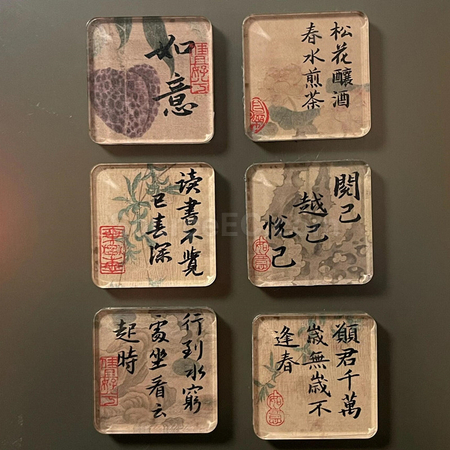 如
意
松花釀酒
春水煎茶
读書不覺
已春深
閱己
越己
悅己
行到水窮
處坐看云
起時
願君千萬
歲無歲不
逢春